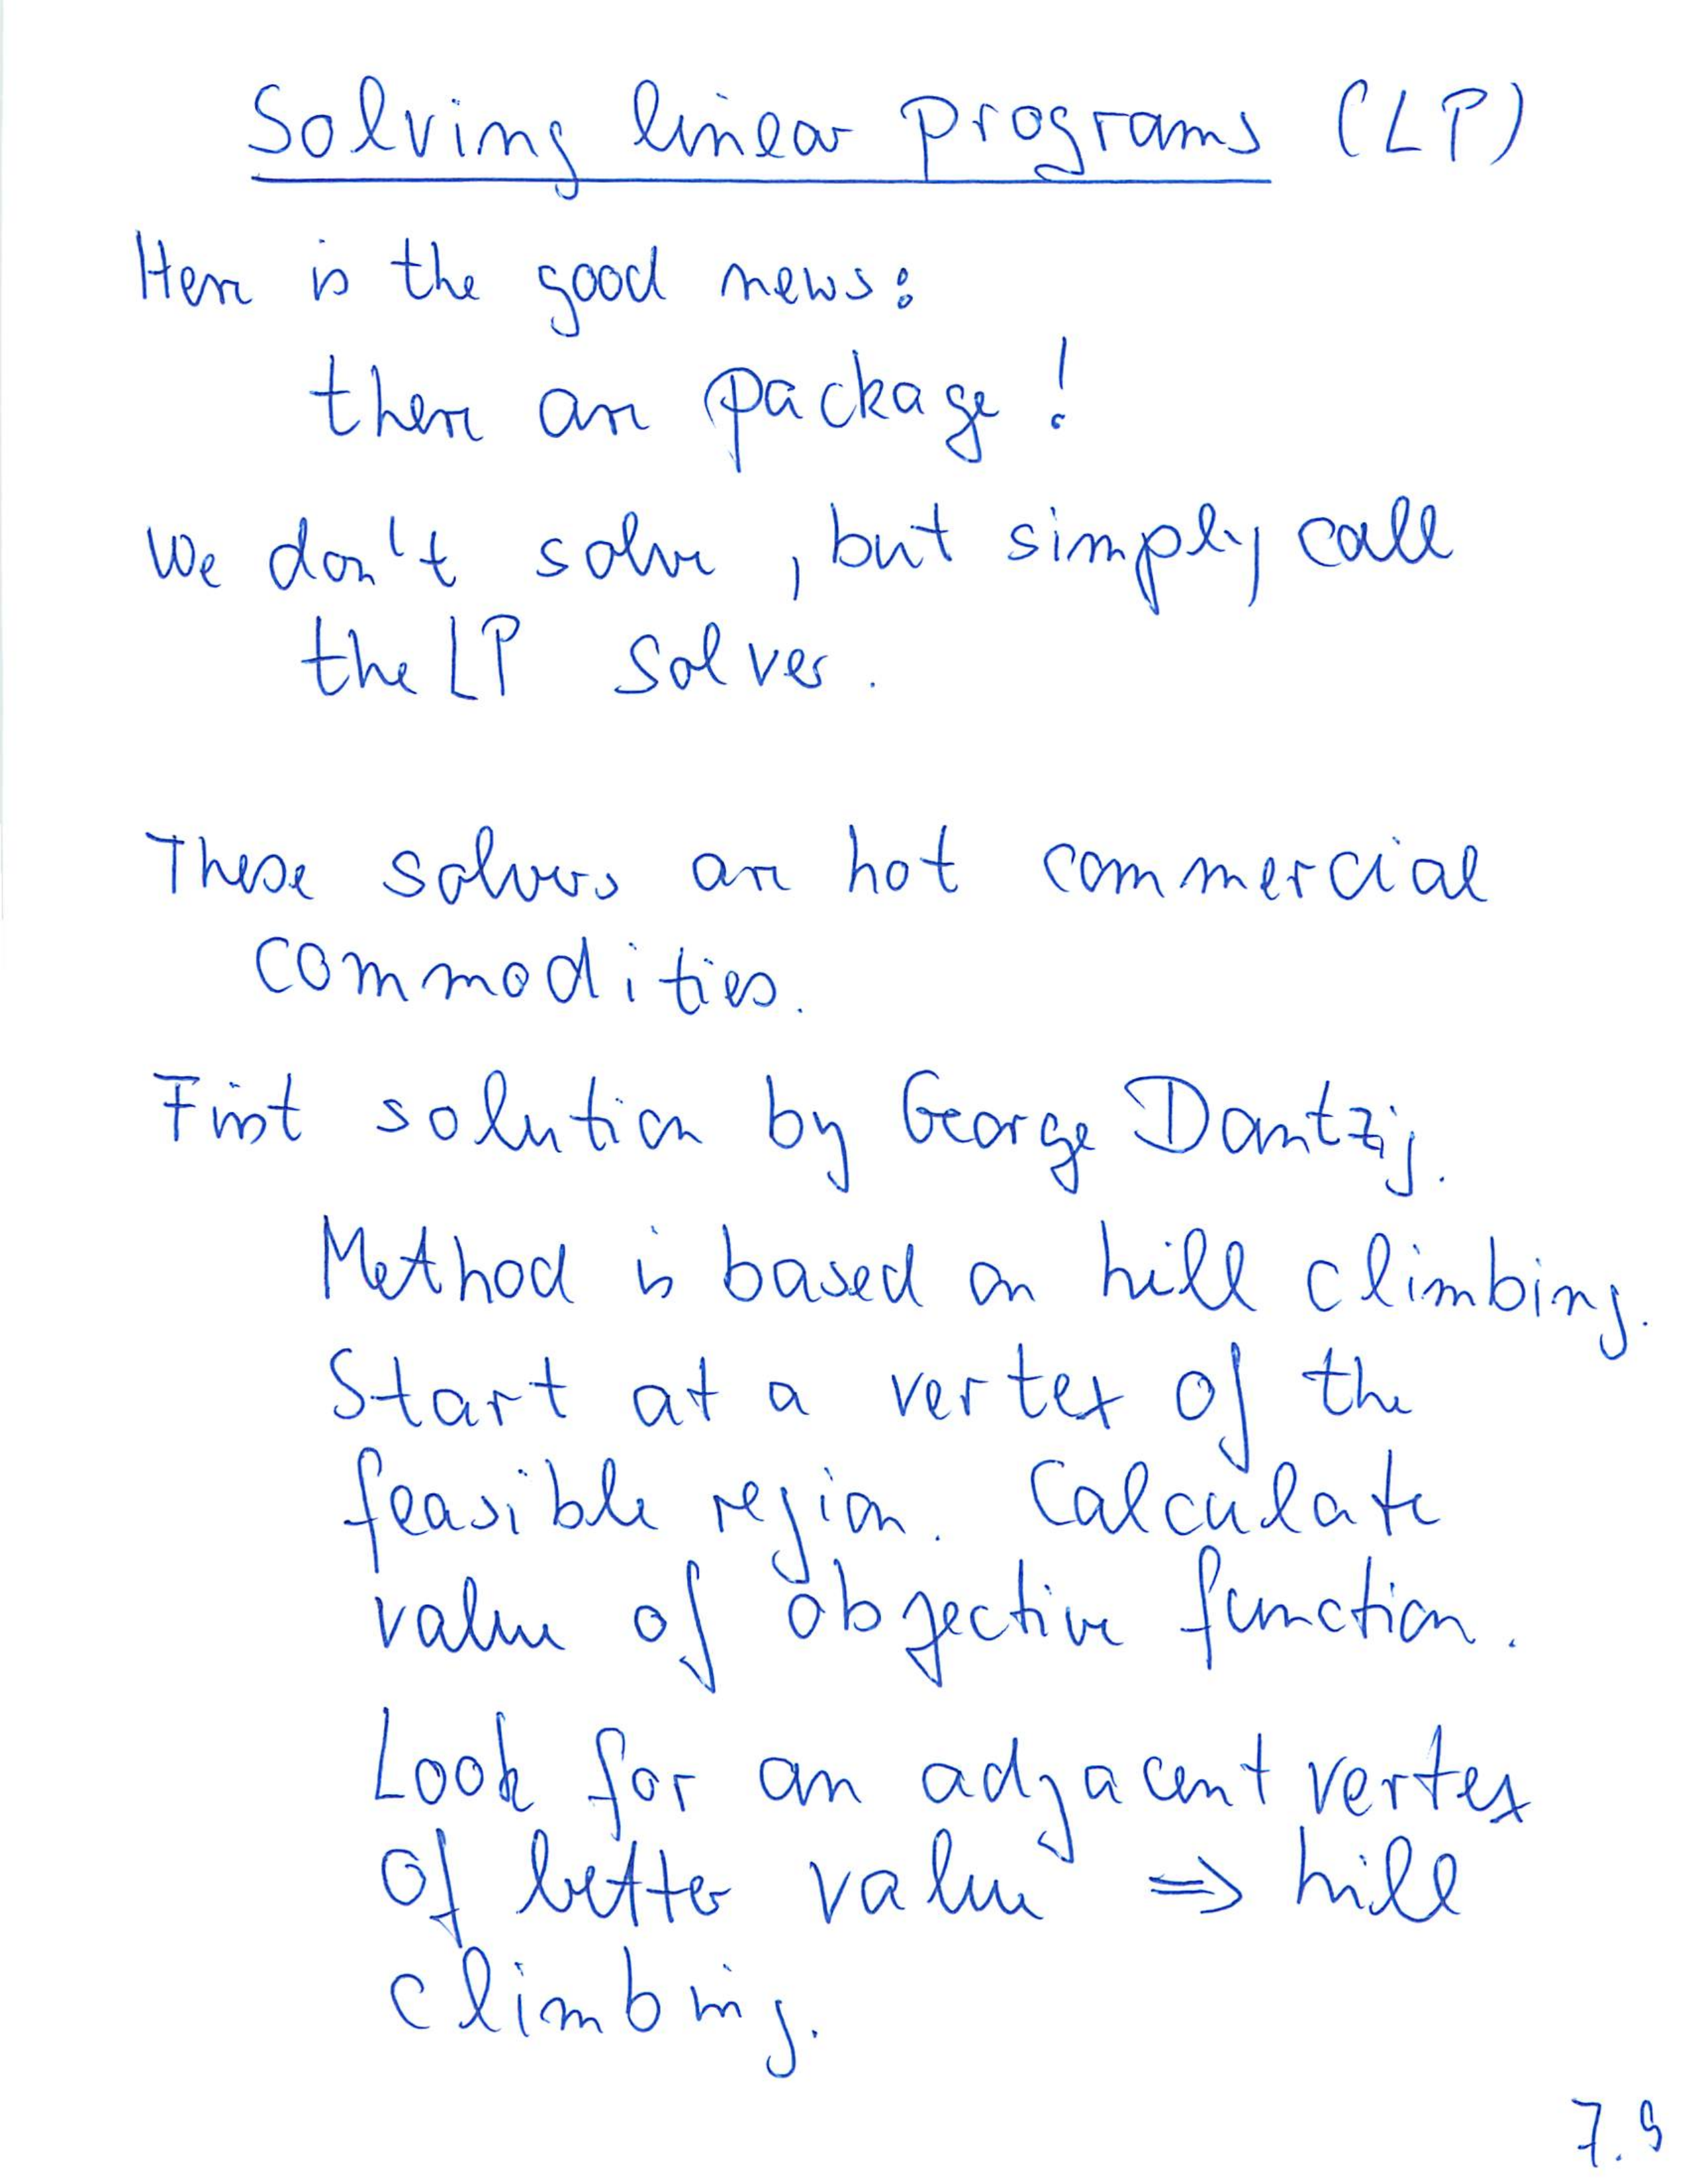 Solving linear programs (LP)
Here is the good news:
there are package!
We don't solve, but simply call
the LP solver.
These solvers are hot commercial
commodities.
First solution by George Dantzig.
Method is based on hill climbing.
Start at a vertex of the
feasible region. Calculate
value of objective function.
Look for an adjacent vertex
of better value ⇒ hill
climbing.
7.9